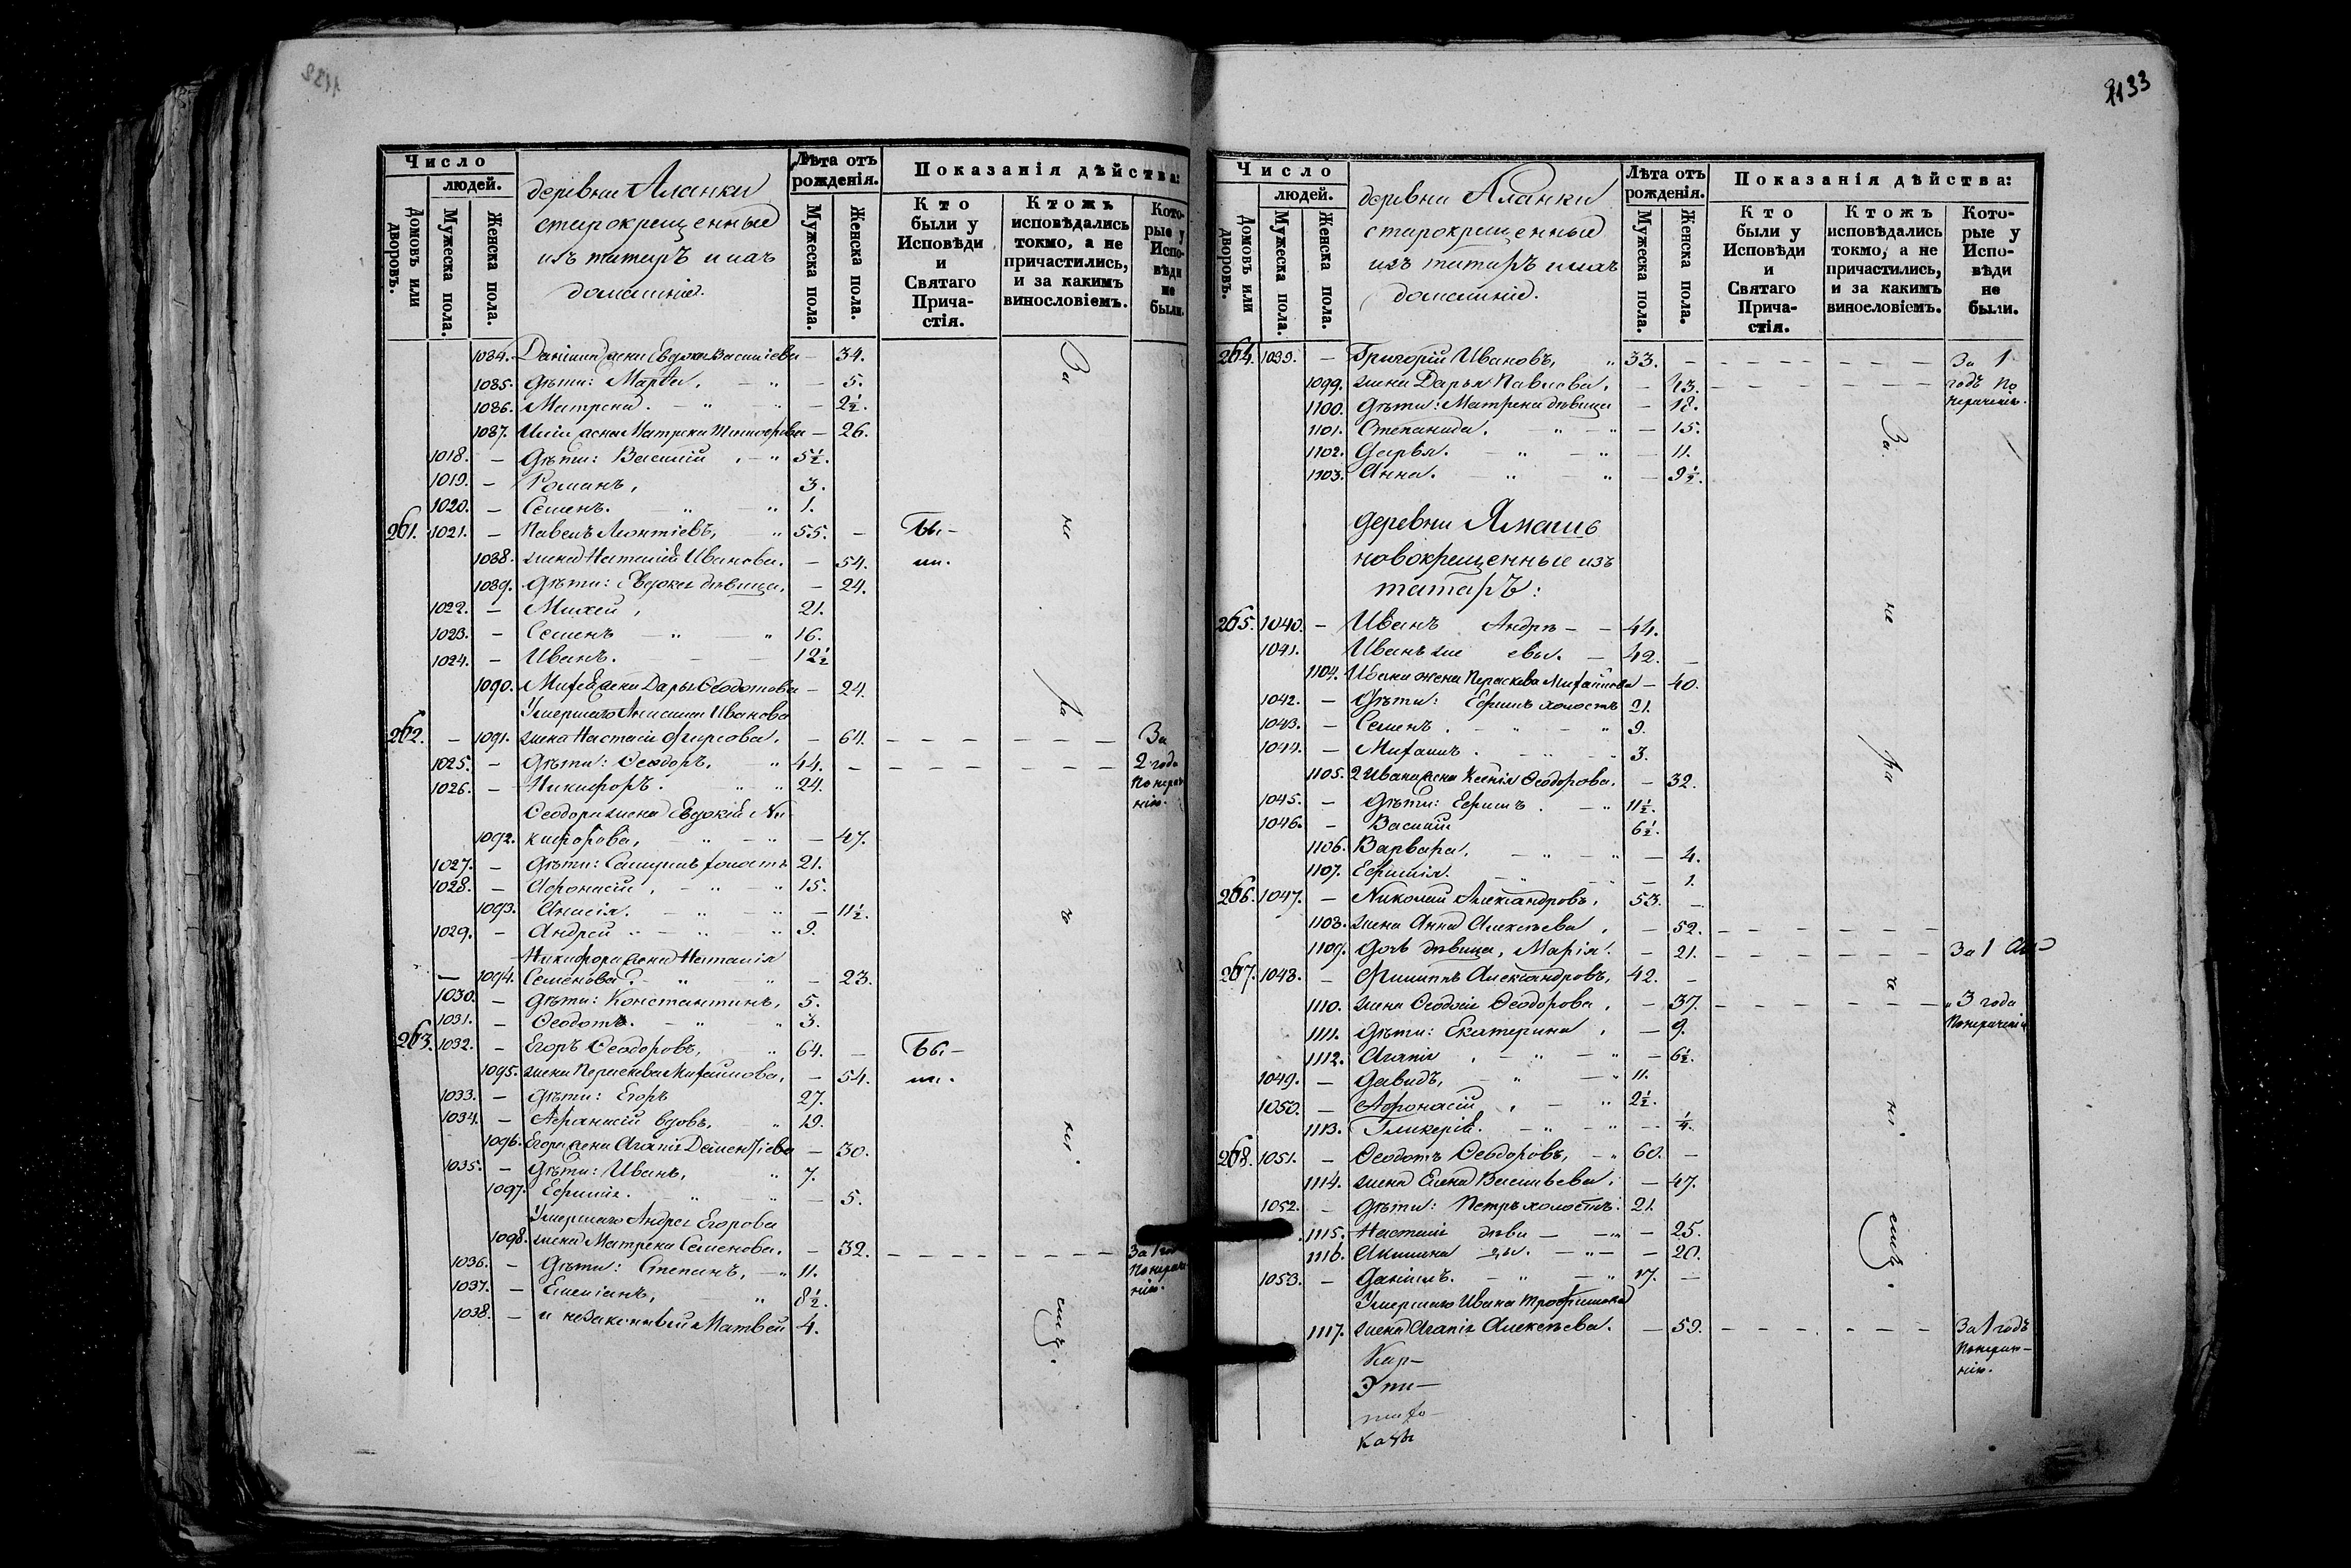 Число
людей.
Домовъ или дворовъ.
Мужеска пола.
Женска пола.
деревни Аланки
старокрещенные
изъ татаръ и ихъ
домашніе.
Лѣта отъ рожденія.
Мужеска пола.
Женска пола.
Показанія дѣйства:
Кто были у Исповѣди и Святаго Прича-стія.
Ктожъ исповѣдались токмо, а не причастились, и за какимъ винословіемъ.
Кото-рые у Испо-вѣди не были.
1084. Даніила жена Евдокія Василіева — 34.
1085. Дѣти: Марѳа, — „ — 5.
1086. Матрена. — „ — 2½.
1087. жена Матрена — 26.
1018. — Дѣти: Василій, — „ 5½.
1019. — Романъ, 3.
1020. — Семенъ. „ „ 1.
261. 1021. — Павелъ Леонтіевъ, „ 55. — Бы-
1088. жена Наталія Иванова. — 54. ли.
1089. Дѣти: Евдокія дѣвица, — 24.
1022. — Михей, 21.
1023. — Семенъ — „ — „ 16.
1024. — Иванъ. — — — 12½
1090. Михея жена Дарья Ѳеодотова — 24.
Умершаго Иванова
262. — 1091. жена Настасія Фирсова. — 64. — — — — — — За
1025. — Дѣти: Ѳеодоръ, „ 44. — — — — — — — 2 года
1026. — Никифоръ. „ „ 24. По нераче-
нію.
Ѳеодора жена Евдокія Ни-
1092. кифорова, „ „ — 47.
1027. — Дѣти: Самуилъ холостъ 21.
1028. — Афонасій, — „ — „ 15.
1093. Анисія. — „ — „ — 11½.
1029. — Андрей „ — „ „ 9.
Никифора жена Наталія
— 1094. Семенова. — „ „ — 23.
1030. — Дѣти: Константинъ, 5.
1031. — Ѳеодотъ. — „ — „ 3.
263. 1032. — Егоръ Ѳеодоровъ, „ 64. — Бы-
1095. жена Пераскева Михайлова, — 54. ли.
1033. — Дѣти: Егоръ 27.
1034. — Афанасій вдовъ. „ 19.
1096. Егора жена Агапія Дементіева — 30.
1035. — Дѣти: Иванъ, „ 7.
1097. Ефимія. „ „ — 5.
Умершаго Андрея Егорова
1098. жена Матрена Семенова. — 32. — — — — — — За 1 го
1036. — Дѣти: Степанъ, — „ 11. По нераче-
1037. — Емеліанъ, „ 8½. нію.
1038. — и незаконный Матвей 4.
За
не
ра
че
ні.
емъ.
1133
Число
людей.
Домовъ или дворовъ.
Мужеска пола.
Женска пола.
деревни Аланки
старокрещенные
изъ татаръ и ихъ
домашніе.
Лѣта отъ рожденія.
Мужеска пола.
Женска пола.
Показанія дѣйства:
Кто были у Исповѣди и Святаго Прича-стія.
Ктожъ исповѣдались токмо, а не причастились, и за какимъ винословіемъ.
Кото-рые у Испо-вѣди не были.
264. 1039. — Григорій Ивановъ, „ 33. — — — — — — За 1
1099. жена Дарья Павлова. — 43. — — — — — — годъ По
1100. Дѣти: Матрена дѣвица — 18. нераченію.
1101. Степанида. „ „ — 15.
1102. Дарья. — „ — „ — 11.
1103. Анна. — „ — „ — 9½.
деревни Ямашъ
новокрещенные изъ
татаръ:
265. 1040. — Иванъ Андрѣ- — 44.
1041. Иванъ же евы. — 42. —
1104. Ивана жена Пераскева Михайлова — 40.
1042. — Дѣти: Ефимъ холостъ 21.
1043. — Семенъ. — „ — „ 9.
1044. — Михаилъ. — „ 3.
1105. 2 Ивана жена Ксенія Ѳеодорова. — 32.
1045. — Дѣти: Ефимъ. — „ 11½.
1046. — Василій 6½.
1106. Варвара. — „ — „ — 4.
1107. Ефимія. — „ — „ — 1.
266. 1047. — Николай Александровъ, 53. —
1108. жена Анна Алексѣева, — 52. — — — — — —
1109. дочь дѣвица, Марія. — 21. — — — — — — За 1
267. 1048. — Филиппъ Александровъ, 42. —
1110. жена Ѳеодосія Ѳеодорова, — 37. — — — — — — „ 3 года
1111. Дѣти: Екатерина, — 9. По нераченію
1112. Агапія, — „ — „ — 6½.
1049. — Давидъ, — „ — „ 11.
1050. — Афонасій, — „ 2½.
1113. Гликерія. — „ — „ — ¼.
268. 1051. — Ѳеодотъ Ѳеодоровъ, — „ 60. —
1114. жена Елена Васильева. — 47.
1052. — Дѣти: Петръ холостъ. 21.
1115. Настасія дѣви- — „ — 25.
1116. Акилина цы. — „ — — 20.
1053. — Даніилъ. — „ — „ 17. —
Умершаго Ивана Трофимова
1117. жена Агапія Алексѣева. — 59. — — — — — — За 1 годъ
По нераче-
нію.
За
не
ра
че
ні.
емъ.